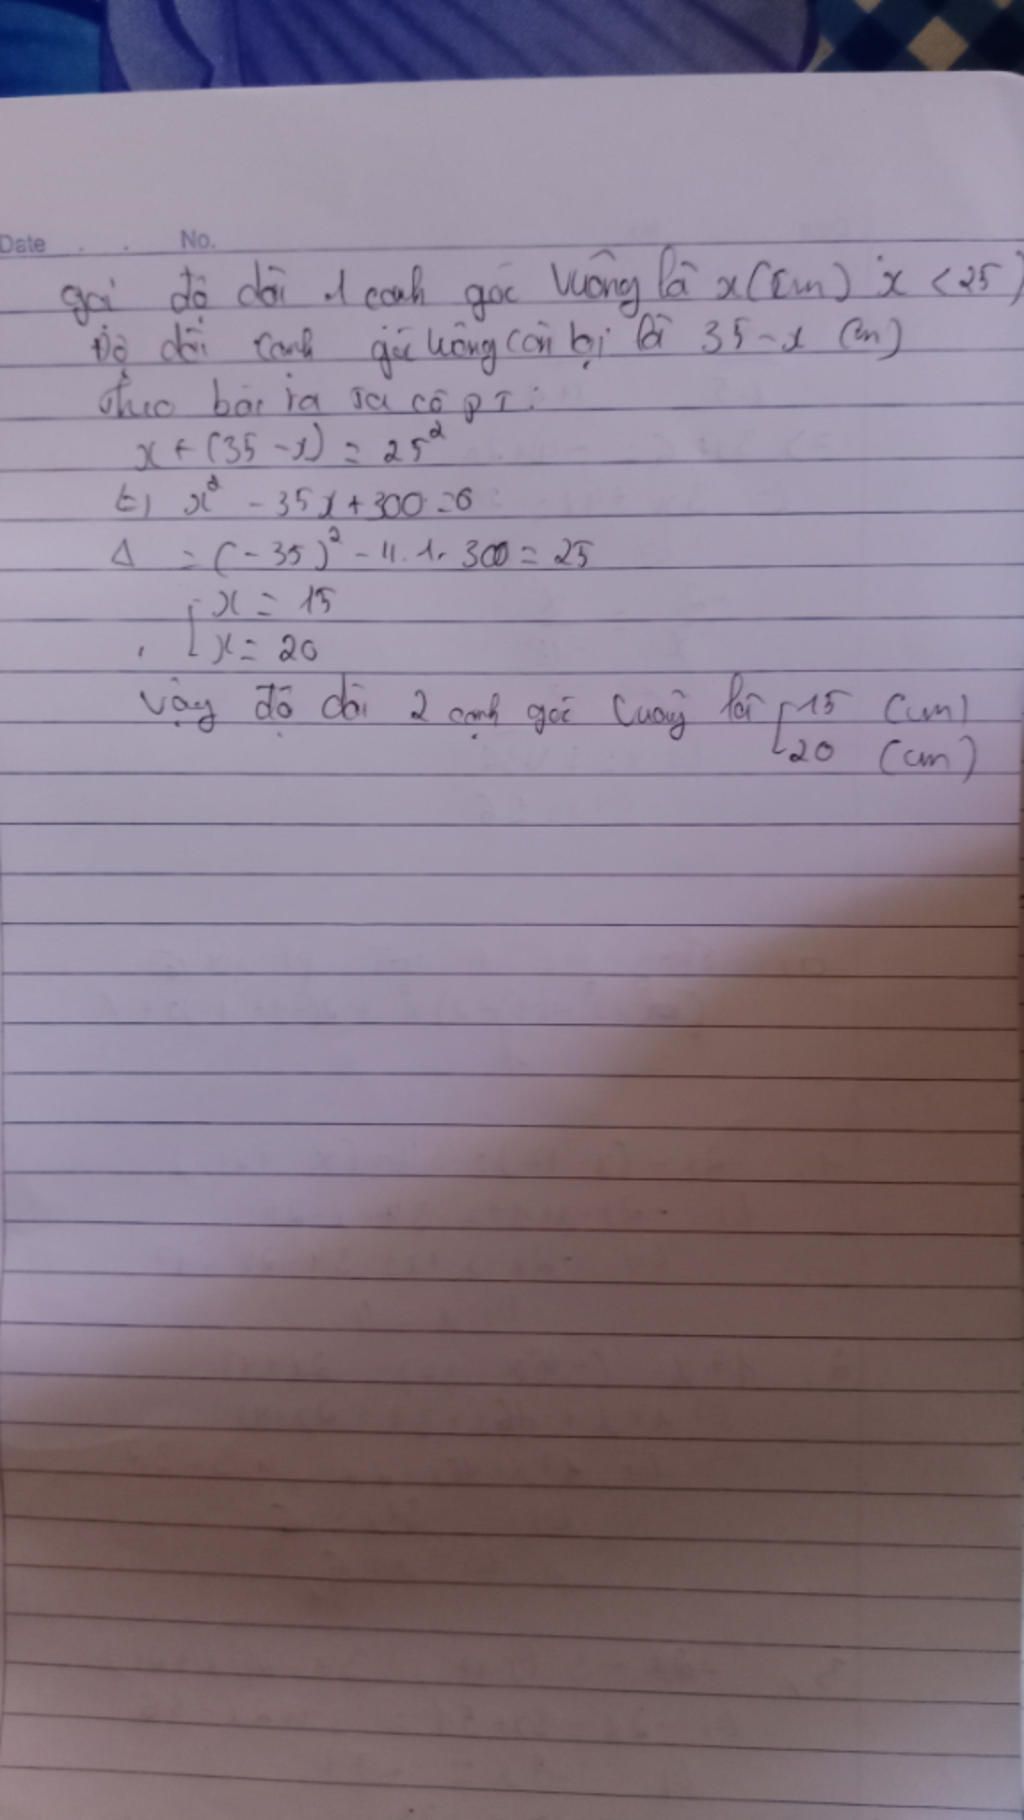 Date . . No.
gọi độ dài 1 cạnh góc vuông là x (cm) x < 25)
Độ dài cạnh góc vuông còn lại là 35 - x (cm)
theo bài ra ta có PT:
x + (35 - x) = 25²
(=) x² - 35x + 300 = 0
Δ = (-35)² - 4.1.300 = 25
[ x = 15
[ x = 20
Vậy độ dài 2 cạnh góc vuông là [ 15 (cm)
[ 20 (cm)